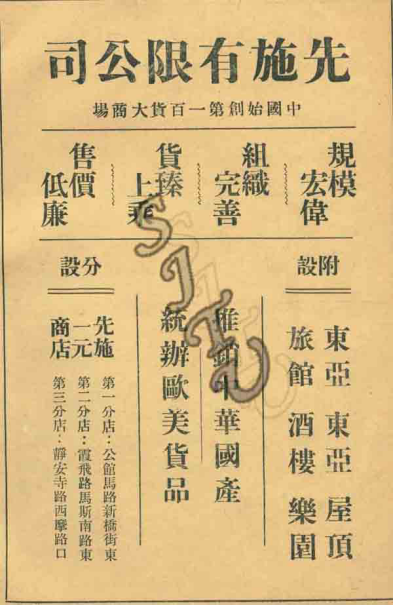 先施有限公司
中國始創第一百貨大商場
規模
宏偉
組織
完善
貨臻
上乘
售價
低廉
附設
東亞 東亞 屋頂
旅館 酒樓 樂園
推銷中華國產
統辦歐美貨品
分設
先施
一元
商店
第一分店：公館馬路新橋街東
第二分店：霞飛路馬斯南路東
第三分店：靜安寺路西摩路口
SJTU